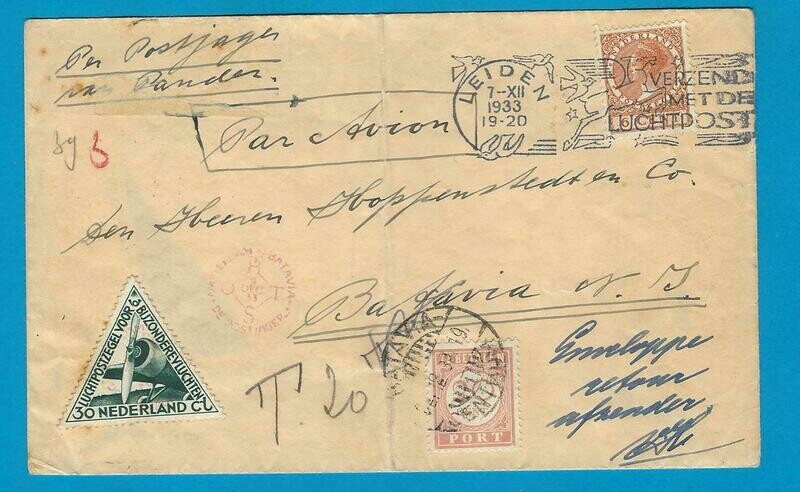 Per Postjager
van Pander.
LEIDEN
7-XII
1933
19-20
VERZEND
MET DE
LUCHTPOST
NEDERLAND
Par Avion
6
Den Heeren Hoppenstedt en Co.
Batavia N. I.
BATAVIA
DE POSTJAGER
LUCHTPOSTZEGEL VOOR BIJZONDERE VLUCHTEN
30 NEDERLAND CT
T. 20
BATAVIA
PORT
Enveloppe
retour
afzender